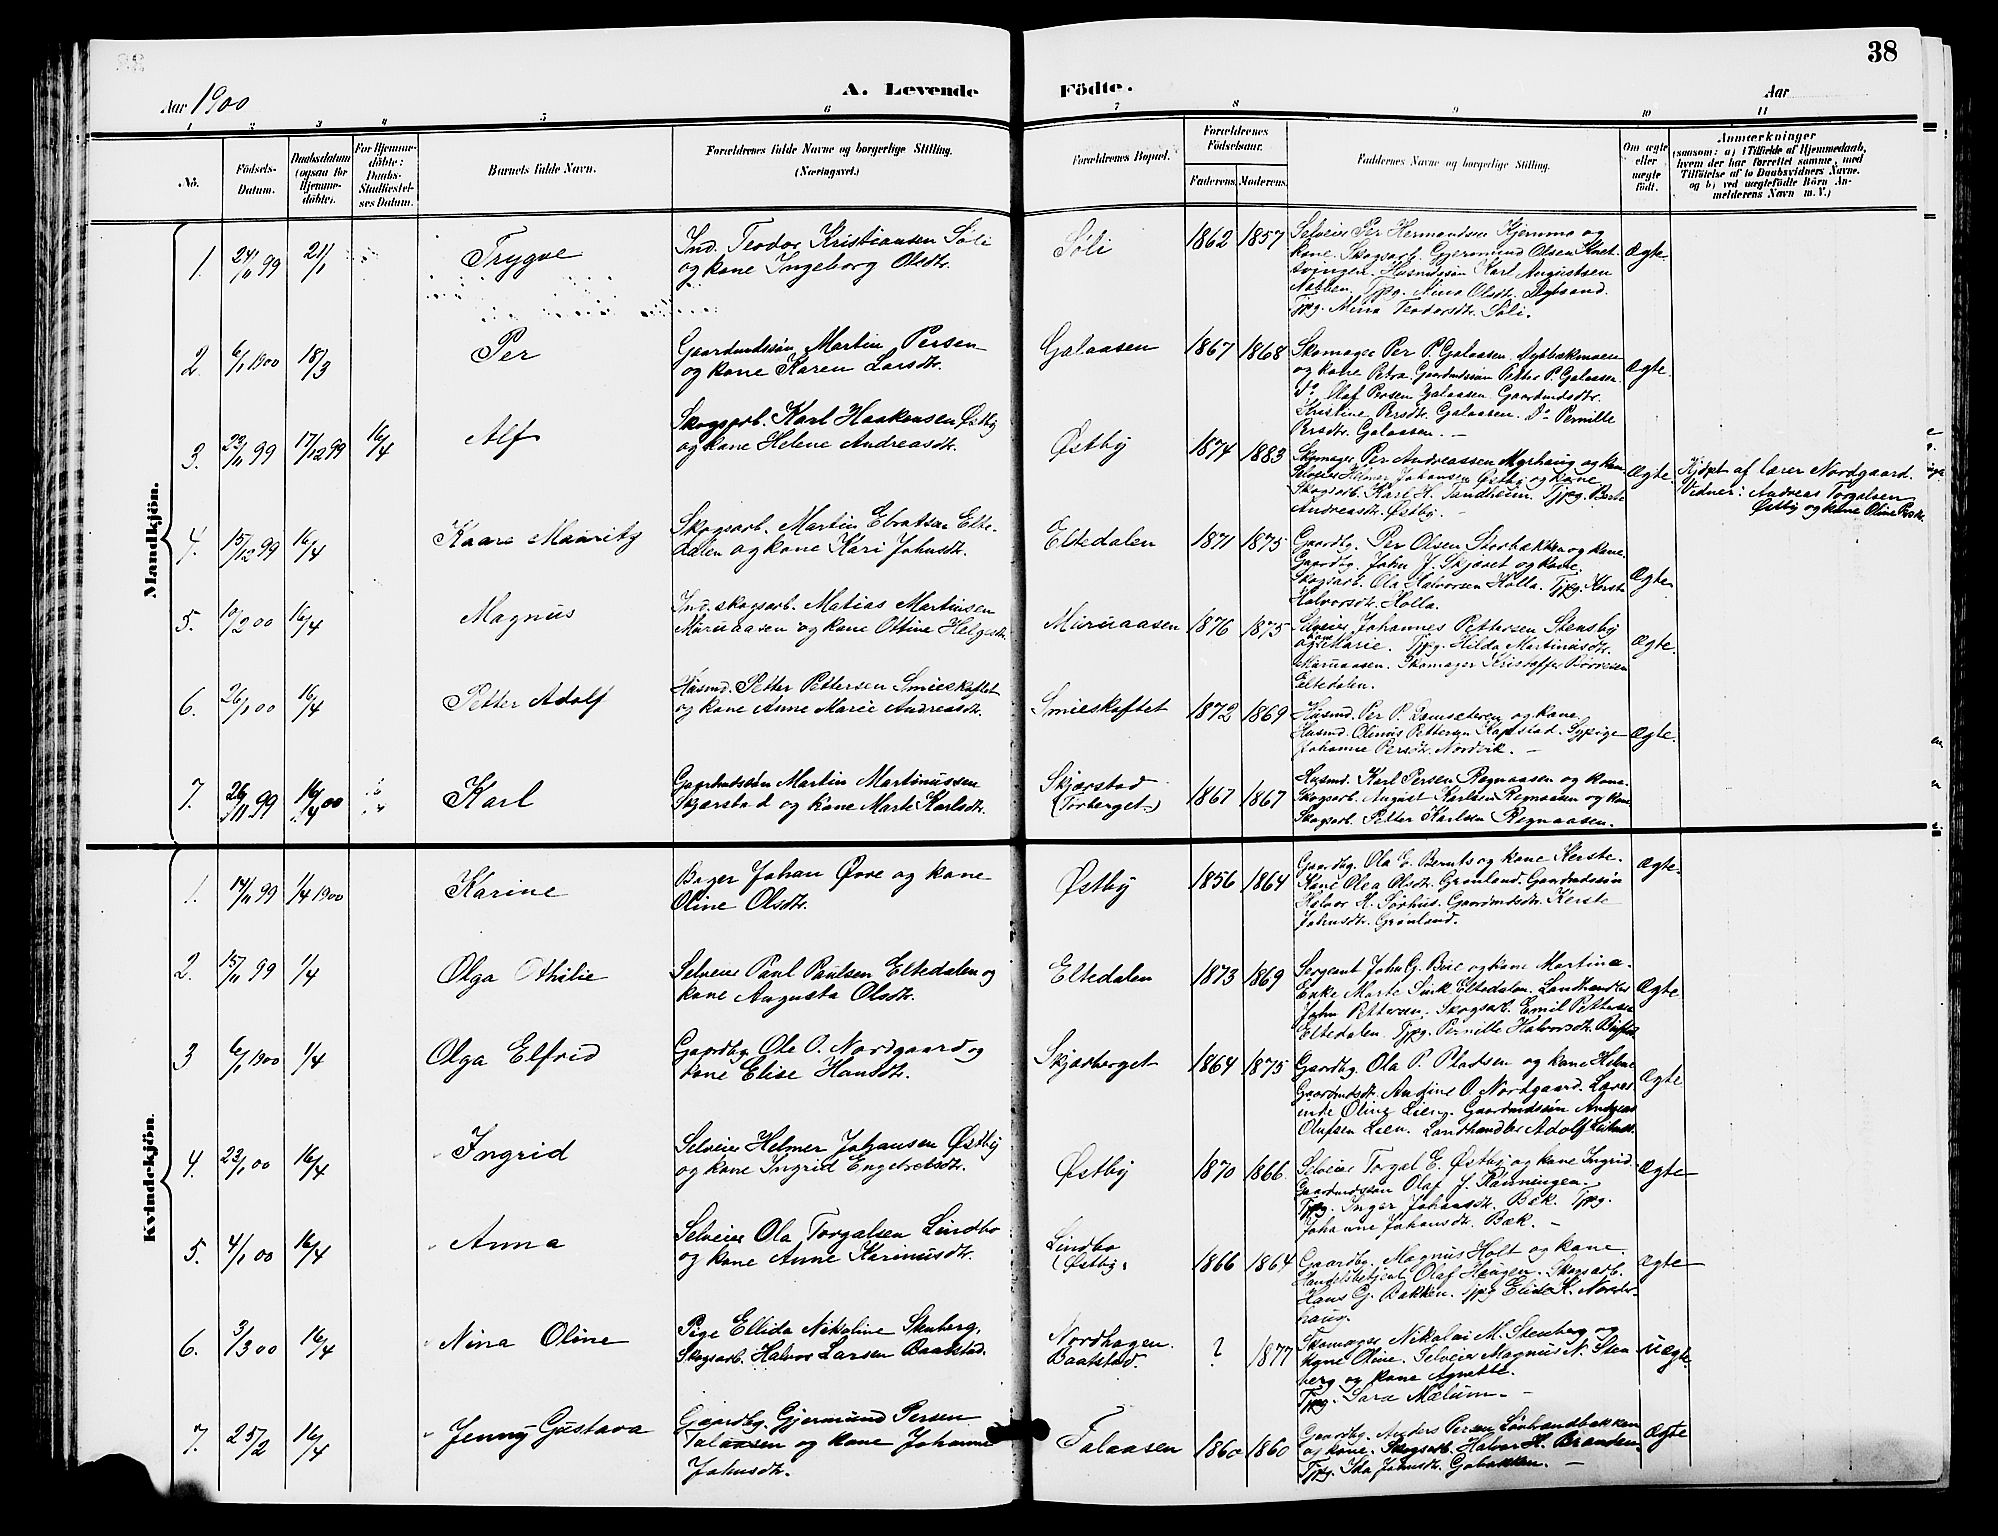 38
Aar 1900
A. Levende
Födte.
Aar
1 2 3 4 5 6 7 8 9 10 11
No.
Födsels-
Datum.
Daabsdatum
(ogsaa for
Hjemme-
döbte).
For Hjemme-
döbte:
Daabs-
Stadfæstel-
ses Datum.
Barnets fulde Navn.
Forældrenes fulde Navne og borgerlige Stilling.
(Næringsvei.)
Forældrenes Bopæl.
Forældrenes
Födselsaar.
Faderens.
Moderens.
Faddernes Navne og borgerlige Stilling.
Om ægte
eller
uægte
födt.
Anmærkninger
(saasom: a) i Tilfælde af Hjemmedaab,
hvem der har forrettet samme, med
Tilföielse af to Daabsvidners Navne.
og b) ved uægtefödte Börn An-
melderens Navn m.V.)
Mandkjön.
1. 24/11 99 21/1 Trygve
Ind. Teodor Kristiansen Søli
og kone Ingeborg Olsdtr.
Søli 1862 1857
Selveier Per Hermandsen Kjemmo og
kone. Skogsarb. Gjermund Olsen
Husmdsøn Karl Augustsen
Nabben. Tjpg. Nina Olsdtr.
Tjpg. Mina Teodorsdtr. Søli.
Ægte
2. 6/1 1900 18/3 Per
Gaardmdssøn Martin Persen
og kone Karen Larsdtr.
Galaasen 1867 1868
Skomager Per P. Galaasen.
og kone Petra. Gaardmdssøn Petter P. Galaasen.
do Olaf Persen Galaasen Gaardmdsdtr.
Kristine Persdtr. Galaasen. Do Pernille
Persdtr. Galaasen. —
Ægte.
3. 23/11 99 17/12 99 16/4 Alf
Skogsarb. Karl Haakensen Østby
og kone Helene Andreasdtr.
Østby 1874 1883
Skomager Per Andreassen Myrhaug og kone
Selveier Helmer Johansen Østby og kone
Skogsarb. Karl H. Tandheim. Tjpg. Berte
Andreasdtr. Østby.
Ægte.
Hjdøpt af lærer Nordgaard.
Vidner: Andreas Torgalsen
Østby og kone Oline Persdtr.
4. 15/12 99 16/4 Kaare Mauritz
Skogsarb. Martin Ebratsen Elte-
dalen og kone Kari Johnsdtr.
Eltedalen 1871 1875
Gaardbg. Per Olsen Storbækken og kone.
Gaardbg. John J. Skjæret og kone.
Skogsarb. Ola Halvorsen Holla. Tjpg. Kerste
Halvorsdtr. Holla.
Ægte
5. 10/2 00 16/4 Magnus
Ind. skogsarb. Matias Martinsen
Muruaasen og kone Ottine Helgesdtr.
Muruaasen 1876 1875
Selveier Johannes Pettersen Stensby
og kone Marie. Tjpg. Hilda Martinusdtr.
Muruaasen. Skomager Kristoffer
Eltedalen.
Ægte.
6. 26/1 00 16/4 Petter Adolf
Husmd. Petter Pettersen Smieskaftet
og kone Anne Marie Andreasdtr.
Smieskaftet 1872 1869
Husmd. Per P. og kone
Husmd. Olinus Pettersen Kapstad.
Johanne Persdtr. Nordvik. —
Ægte.
7. 26/11 99 16/4 00 Karl
Gaardmdssøn Martin Martinussen
Skjærstad og kone Marte Karlsdtr.
Skjærstad
(Tørberget) 1867 1867
Husmd. Karl Persen Regnaasen og kone
Skogsarb. August Karlsen Regnaasen og kone
Skogsarb. Petter Karlsen Regnaasen.
Kvindekjön.
1. 14/11 99 1/4 1900 Karine
Bager Johan Øvre og kone
Oline Olsdtr.
Østby 1856 1864
Gaardbg. Ola G. Bernts og kone Kerste.
Kone Olea Olsdtr. Grønland. Gaardmdssøn
Halvor H. Sørhus. Gaardmdsdtr. Kerste
Johnsdtr. Grønland.
Ægte.
2. 15/11 99 1/4 Olga Othilie
Selveier Paul Paulsen Eltedalen og
kone Augusta Olsdtr.
Eltedalen 1873 1869
Sergeant John G. Bue og kone Martina.
Enke Marte Sink Eltedalen. Landhandler
John Pettersen. Skogsarb. Emil Pettersen
Eltedalen. Tjpg. Pernille Halvorsdtr.
Ægte.
3 6/1 1900 1/4 Olga Elfrid
Gaardbg. Ole O. Nordgaard og
kone Elise Hansdtr.
Skjærberget 1864 1875
Gaardbg. Ola P. Pladsen og kone Helene
Gaardmdsdtr. Andine O. Nordgaard. Lærer-
inde Oline Lien. Gaardmdssøn Andreas
Olufsen Lien. Landhandler Adolf
Ægte
4. 22/1 00 16/4 Ingrid
Selveier Helmer Johansen Østby
og kone Ingrid Engebretsdtr.
Østby 1870 1866
Selveier Torgal E. Østby og kone Ingrid.
Gaardmdssøn Olaf J. Rønningen.
Tjpg. Inger Johansdtr. Bæk. Tjpg.
Johanne Johansdtr. Bæk. —
Ægte
5. 4/1 00 16/4 Anna
Selveier Ola Torgalsen Lindbo
og kone Anne Karinusdtr.
Lindbo
(Østby) 1866 1864
Gaardbg. Magnus Holt og kone.
Handelsbetjent Olaf Haugen. Skogsarb.
Hans G. Bakken. Tjpg Elida K. Norder-
haug.
Ægte
6. 3/3 00 16/4 Nina Oline
Pige Ellida Nikoline Stenberg,
Skogsarb. Halvor Larsen Baatstad.
Nordhagen.
Baatstad. ? 1877
Skomager Nikolai M. Stenberg og
kone Oline. Selveier Magnus N. Sten
berg og kone Agnette.
Tjpg. Sara Mælum. —
Uægte
7. 25/2 16/4 Jenny Gustava
Gaardbg. Gjermund Persen
Talaasen og kone Johanne
Johnsdtr.
Talaasen 1860 1860
Gaardbg. Anders Persen
og kone. Skogsarb. Halvor H. Branden.
Tjpg. Ida Johnsdtr. Gobakken. —
Ægte